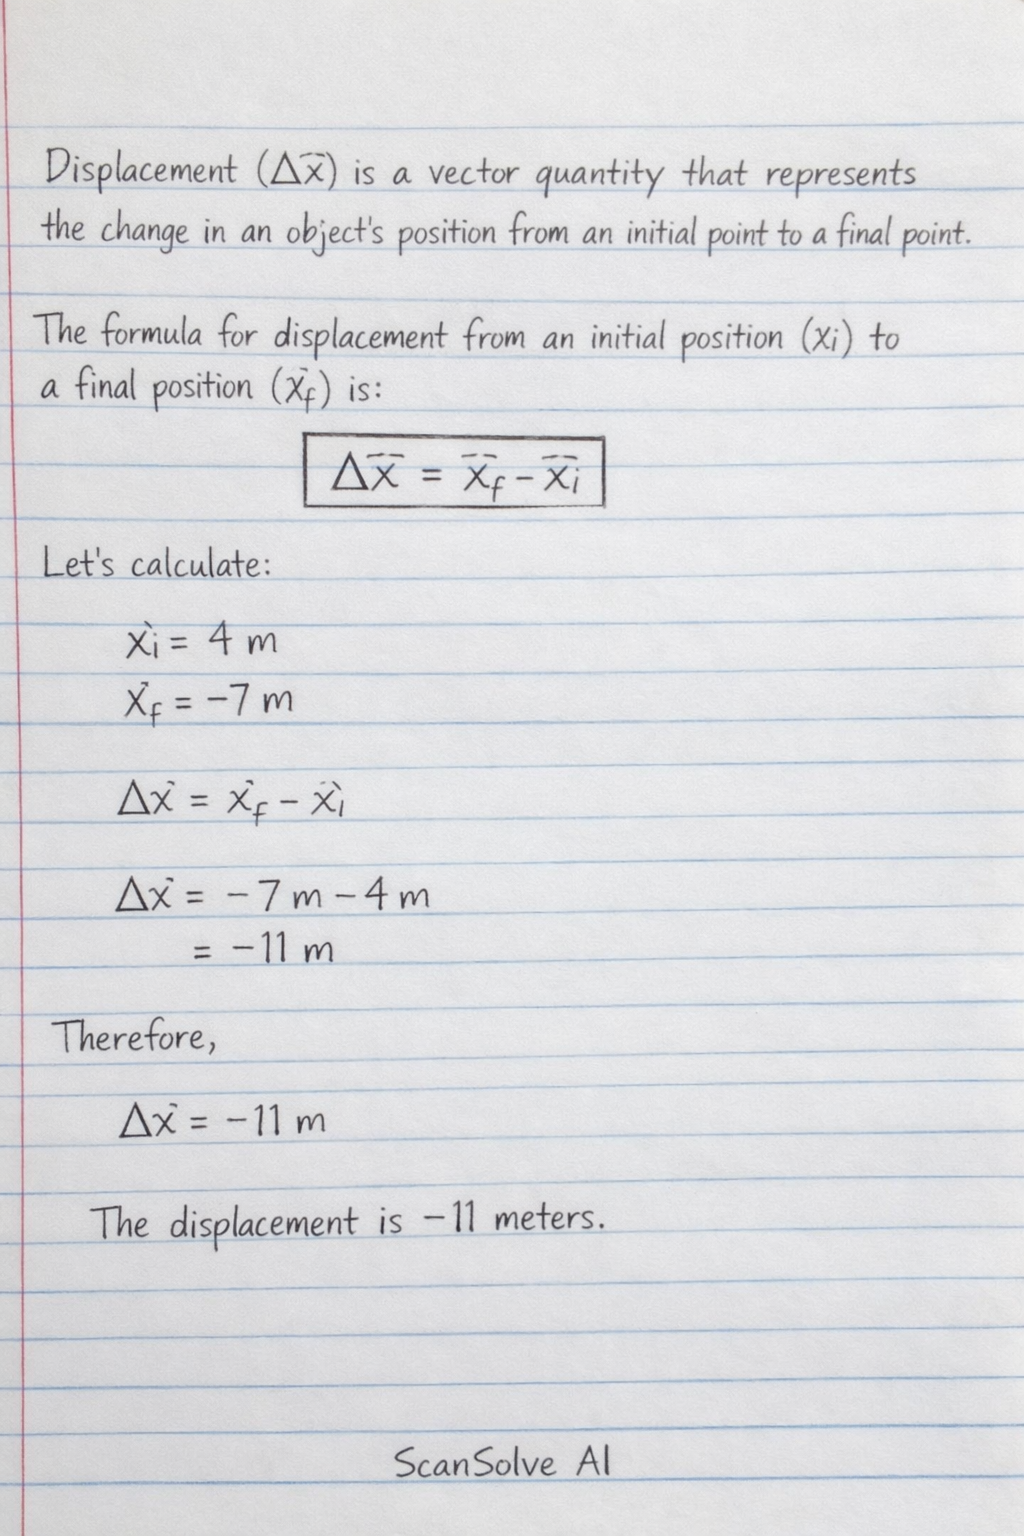 Displacement (Δx⃗) is a vector quantity that represents
the change in an object's position from an initial point to a final point.
The formula for displacement from an initial position (xi) to
a final position (x⃗f) is:
Δx⃗ = x⃗f − x⃗i
Let's calculate:
x⃗i = 4 m
x⃗f = −7 m
Δx⃗ = x⃗f − x⃗i
Δx⃗ = −7 m − 4 m
= −11 m
Therefore,
Δx⃗ = −11 m
The displacement is −11 meters.
ScanSolve AI